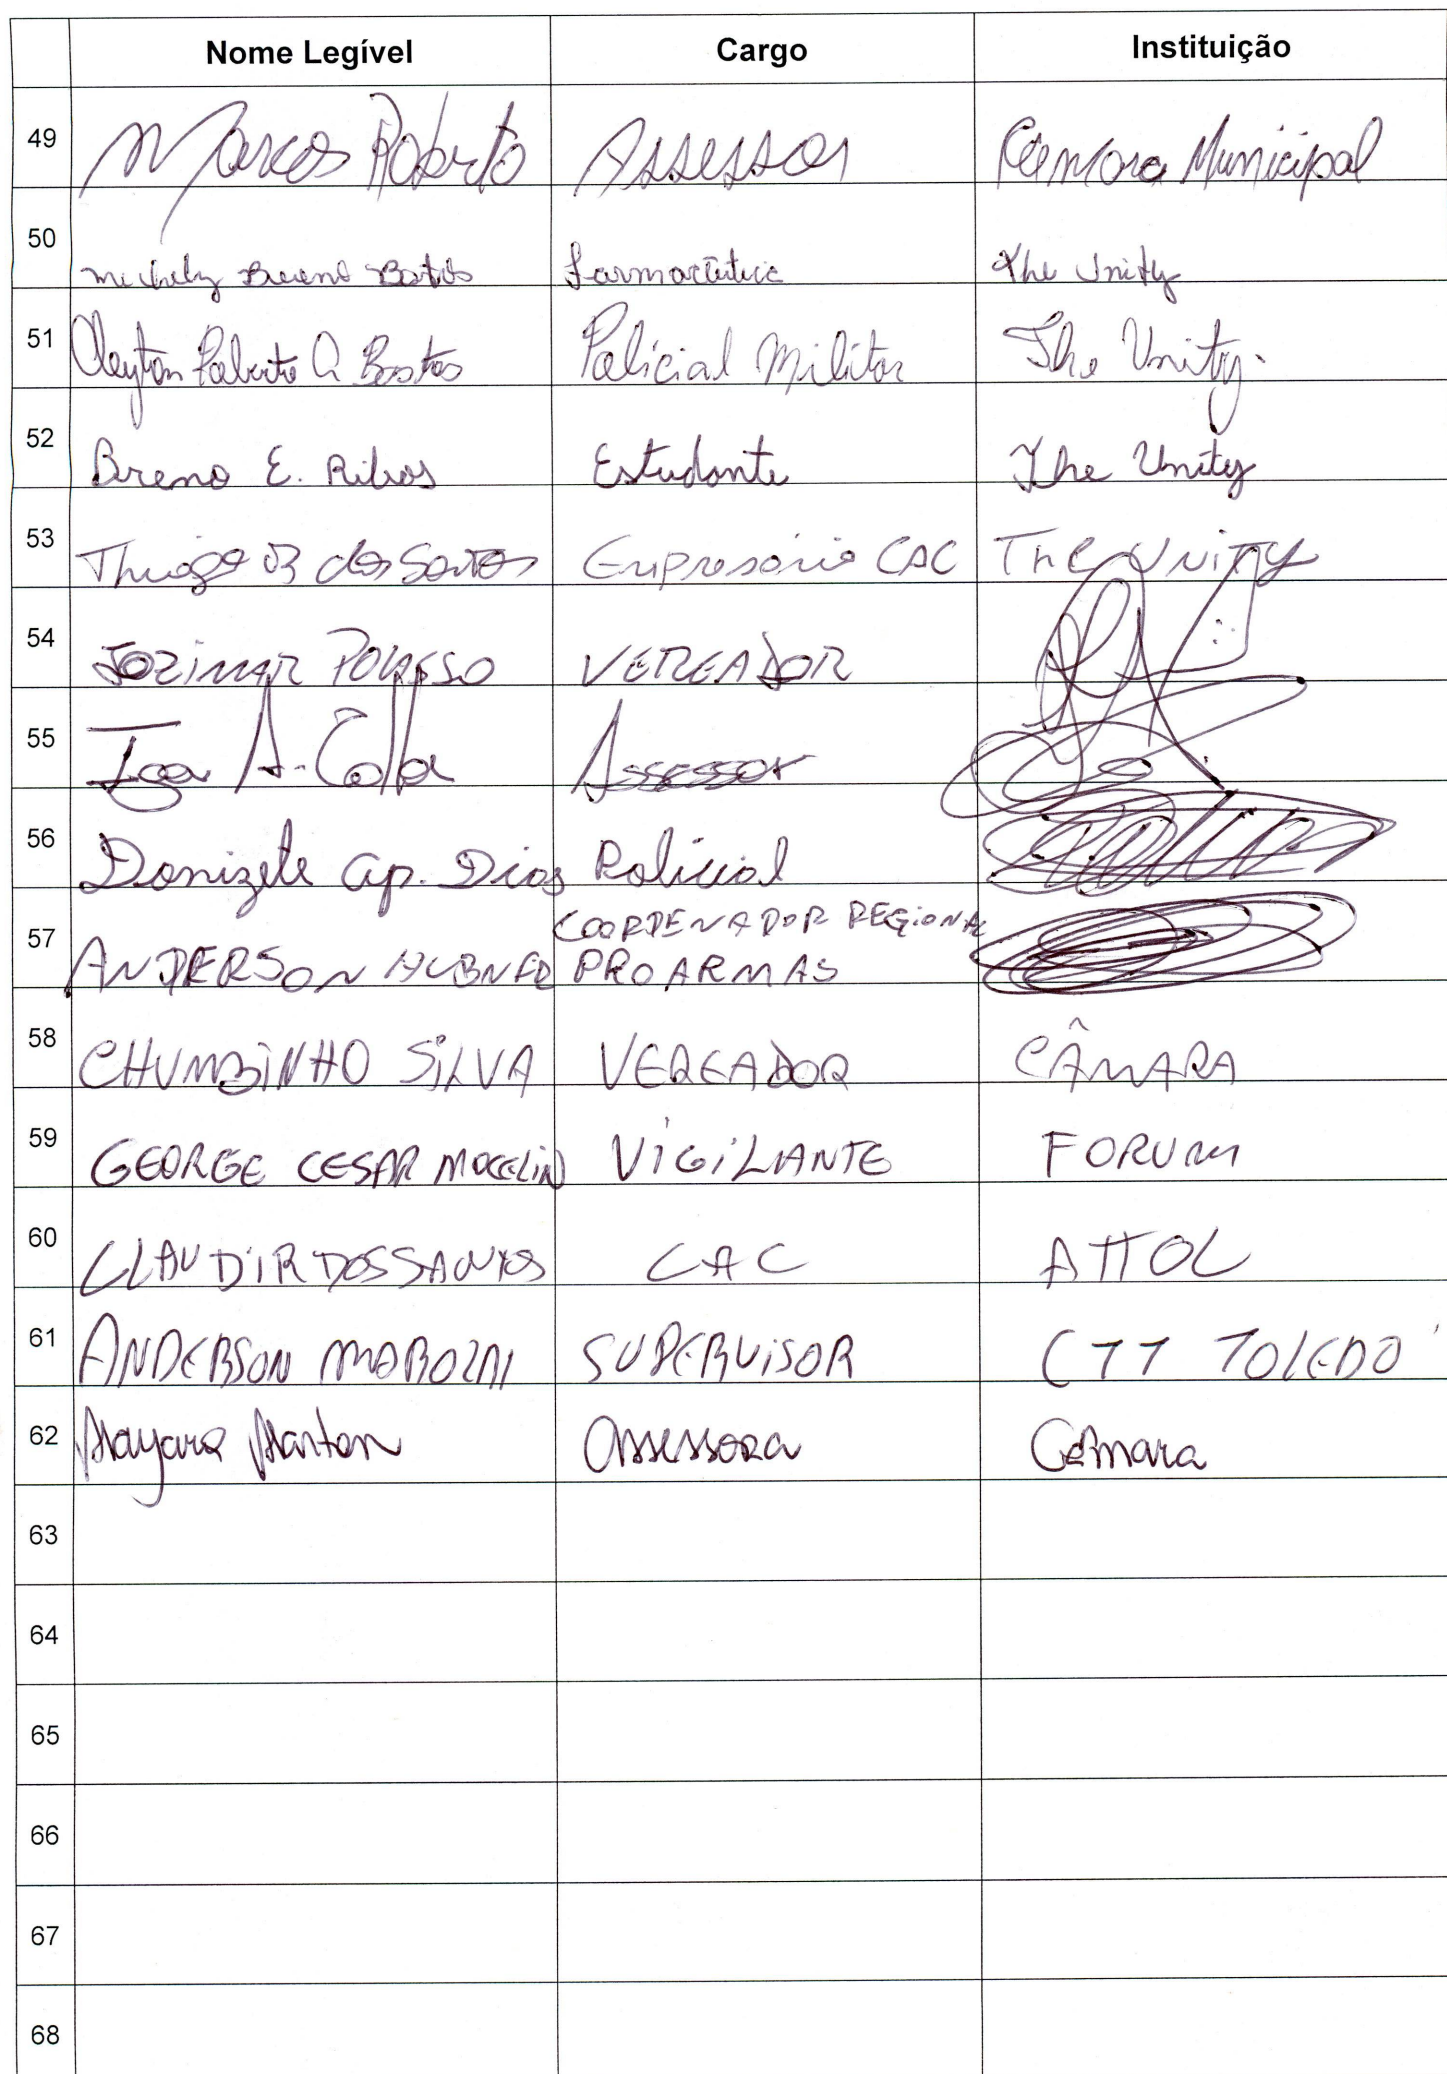 Nome Legível Cargo Instituição
49 Marcos Roberto Assessor Câmara Municipal
50 Michely Bueno Bastos Farmacêutica The Unity
51 Cleyton Roberto A Bastos Policial Militar The Unity.
52 Breno E. Ribas Estudante The Unity
53 Thiago B dos Santos Empresário CAC The Unity
54 JOZIMAR POLASSO VEREADOR
55 A. Colla Assessor
56 Donizete Ap. Dias Policial
COORDENADOR REGIONAL
57 ANDERSON HUBNER PROARMAS
58 CHUMBINHO SILVA VEREADOR CÂMARA
59 GEORGE CESAR MOCELIN VIGILANTE FORUM
60 CLAUDIR DOS SANTOS CAC ATTOL
61 ANDERSON SUPERVISOR CTT TOLEDO
62 Mayara Assessora Câmara
63
64
65
66
67
68